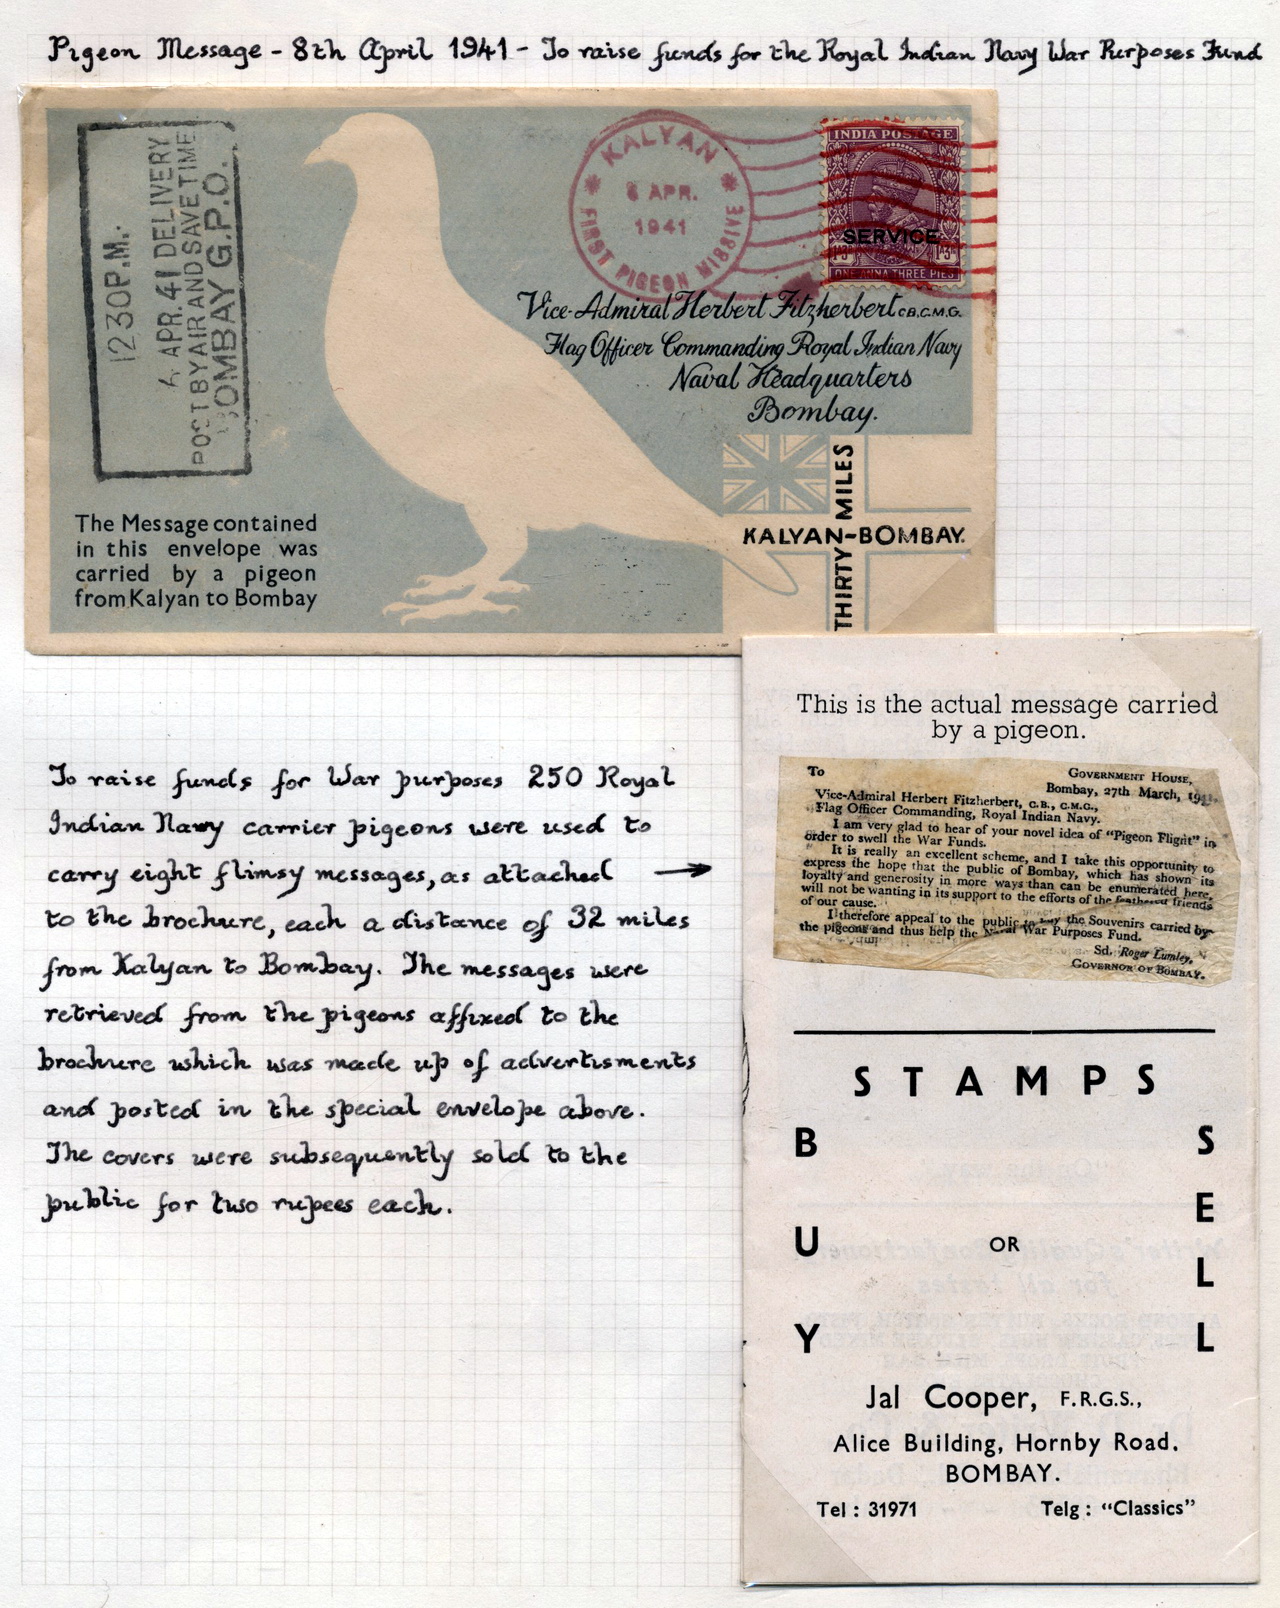 Pigeon Message - 8th April 1941 - To raise funds for the Royal Indian Navy War Purposes Fund
12 30 P.M.
APR. 41 DELIVERY
POST BY AIR AND SAVE TIME
BOMBAY G.P.O.
KALYAN
8 APR.
1941
FIRST PIGEON MISSIVE
INDIA POSTAGE
SERVICE
1a3p 1a3p
ONE ANNA THREE PIES
Vice-Admiral Herbert Fitzherbert C.B, C.M.G.
Flag Officer Commanding Royal Indian Navy
Naval Headquarters
Bombay.
THIRTY MILES
KALYAN-BOMBAY.
The Message contained
in this envelope was
carried by a pigeon
from Kalyan to Bombay
To raise funds for War purposes 250 Royal
Indian Navy carrier pigeons were used to
carry eight flimsy messages, as attached →
to the brochure, each a distance of 32 miles
from Kalyan to Bombay. The messages were
retrieved from the pigeons affixed to the
brochure which was made up of advertisments
and posted in the special envelope above.
The covers were subsequently sold to the
public for two rupees each.
This is the actual message carried
by a pigeon.
To
GOVERNMENT HOUSE,
Bombay, 27th March, 1941.
Vice-Admiral Herbert Fitzherbert, C.B., C.M.G.,
Flag Officer Commanding, Royal Indian Navy.
I am very glad to hear of your novel idea of "Pigeon Flight" in
order to swell the War Funds.
It is really an excellent scheme, and I take this opportunity to
express the hope that the public of Bombay, which has shown its
loyalty and generosity in more ways than can be enumerated here,
will not be wanting in its support to the efforts of the feathered friends
of our cause.
I therefore appeal to the public to buy the Souvenirs carried by
the pigeons and thus help the Naval War Purposes Fund.
Sd. Roger Lumley,
GOVERNOR OF BOMBAY.
STAMPS
BUY
OR
SELL
Jal Cooper, F.R.G.S.,
Alice Building, Hornby Road.
BOMBAY.
Tel : 31971 Telg : "Classics"